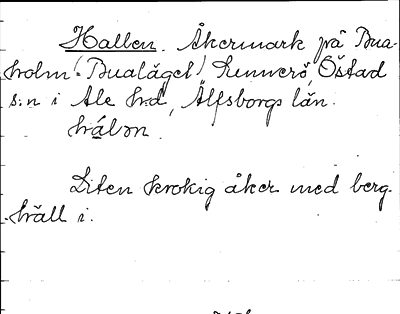 Hallen. Åkermark på Bua-
holm (Bualäget) Sunnerö, Östad
s:n i Ale hd, Älfsborgs län.
hálɔn.
Liten krokig åker med berg-
häll i.